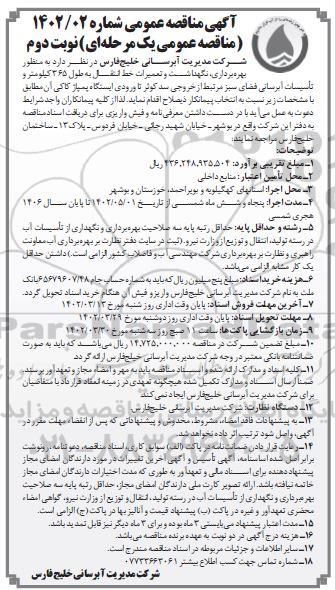 آگهی مناقصه عمومی شماره ۱۴۰۲/۰۲
(مناقصه عمومی یک مرحله‌ای) نوبت دوم
شرکت مدیریت آبرسانی خلیج‌فارس در نظر دارد به منظور
بهره‌برداری، نگهداشت و تعمیرات خط انتقال به طول ۳۶۵ کیلومتر و
تأسیسات آبرسانی فضای سبز مرتبط از خروجی سد کوثر تا ورودی ایستگاه پمپاژ کاکی آن مطابق
با مشخصات زیر نسبت به انتخاب پیمانکار ذیصلاح اقدام نماید. لذا از کلیه پیمانکاران واجد شرایط
دعوت به عمل می‌آید با در دست داشتن معرفی‌نامه و فیش واریزی برای دریافت اسناد مناقصه
به دفتر این شرکت واقع در بوشهر- خیابان شهید رجائی - خیابان فردوس - پلاک ۱۳ - ساختمان
خلیج‌فارس مراجعه نمایند:
توضیحات:
۱- مبلغ تقریبی برآورد: ۴۳۶,۲۴۸,۹۳۵,۵۰۴ ریال
۲- محل تأمین اعتبار: منابع داخلی
۳- محل اجرا: استانهای کهگیلویه و بویراحمد، خوزستان و بوشهر
۴- مدت اجرا: پنجاه و شش ماه شمسی از تاریخ ۱۴۰۲/۰۵/۰۱ تا پایان سال ۱۴۰۶
هجری شمسی
۵- رشته و حداقل پایه: حداقل رتبه پایه سه صلاحیت بهره‌برداری و نگهداری از تأسیسات آب
در رشته تولید، انتقال و توزیع از وزارت نیرو. (ثبت در سایت دفتر نظارت بر بهره‌برداری آب معاونت
راهبری و نظارت بر بهره‌برداری شرکت مهندسی آب و فاضلاب کشور الزامی است.) داشتن حداقل
یک کار مشابه الزامی می‌باشد.
۶- هزینه خرید اسناد: مبلغ پنج میلیون ریال که باید به شماره حساب جام ۶۵۶۷۹۶۰۷/۴۸ بانک
ملت به نام شرکت مدیریت آبرسانی خلیج‌فارس واریز و فیش آن هنگام خرید اسناد تحویل گردد.
۷- آخرین مهلت فروش اسناد: پایان وقت اداری روز شنبه مورخ ۱۴۰۲/۰۳/۱۳
۸- مهلت تحویل اسناد: پایان وقت اداری روز دوشنبه مورخ ۱۴۰۲/۰۳/۲۹
۹- زمان بازگشایی پاکت‌ها: ساعت ۱۱ صبح روز سه‌شنبه مورخ ۱۴۰۲/۰۳/۳۰
۱۰- مبلغ تضمین شرکت در مناقصه ۱۴,۷۲۵,۰۰۰,۰۰۰ ریال می‌باشد که باید به صورت
ضمانتنامه بانکی معتبر در وجه شرکت مدیریت آبرسانی خلیج‌فارس ارائه گردد
۱۱- کلیه اسناد و مدارک ارائه شده و اسناد مناقصه باید به مهر و امضاء مجاز و تعهدآور برسند.
ضمناً ارسال اسناد و مدارک تکمیل شده هیچگونه تعهدی در زمینه انعقاد قرارداد با متقاضیان
برای شرکت مدیریت آبرسانی خلیج‌فارس ایجاد نمی‌کند.
۱۲- دستگاه نظارت: شرکت مدیریت آبرسانی خلیج‌فارس.
۱۳- به پیشنهادات فاقد امضاء، مشروط، مخدوش و پیشنهاداتی که پس از انقضاء مهلت مقرر در
آگهی، واصل شود ترتیب اثر داده نخواهد شد.
۱۴- رعایت قرار دادن ضمانتنامه در پاکت (الف)، سوابق کاری، اسناد مناقصه، دعوتنامه، رونوشت
برابر اصل شده اساسنامه، آگهی تأسیس و آگهی آخرین تغییرات در مورد دارندگان امضای مجاز
پیشنهاددهنده برای اسناد مالی و تعهدآور به طوری که مدت اختیارات دارندگان امضای مجاز
خاتمه نیافته باشد. ارائه تصویر کارت ملی دارندگان امضای مجاز، حداقل رتبه پایه سه صلاحیت
بهره‌برداری و نگهداری از تأسیسات آب در رشته تولید، انتقال و توزیع از وزارت نیرو، گواهی امضاء
محضری تعهدآور و غیره در پاکت (ب) پیشنهاد قیمت و آنالیز بها در پاکت (ج) الزامی است.
۱۵- مدت اعتبار پیشنهاد می‌بایستی ۳ ماه بوده و برای ۳ ماه دیگر نیز قابل تمدید باشد.
۱۶- هزینه درج آگهی در دو نوبت به عهده برنده مناقصه می‌باشد.
۱۷- سایر اطلاعات و جزئیات مربوطه در اسناد مناقصه مندرج است.
۱۸- شماره تماس جهت کسب اطلاع بیشتر ۰۷۷۳۳۶۶۳۰۶۱
شرکت مدیریت آبرسانی خلیج‌فارس